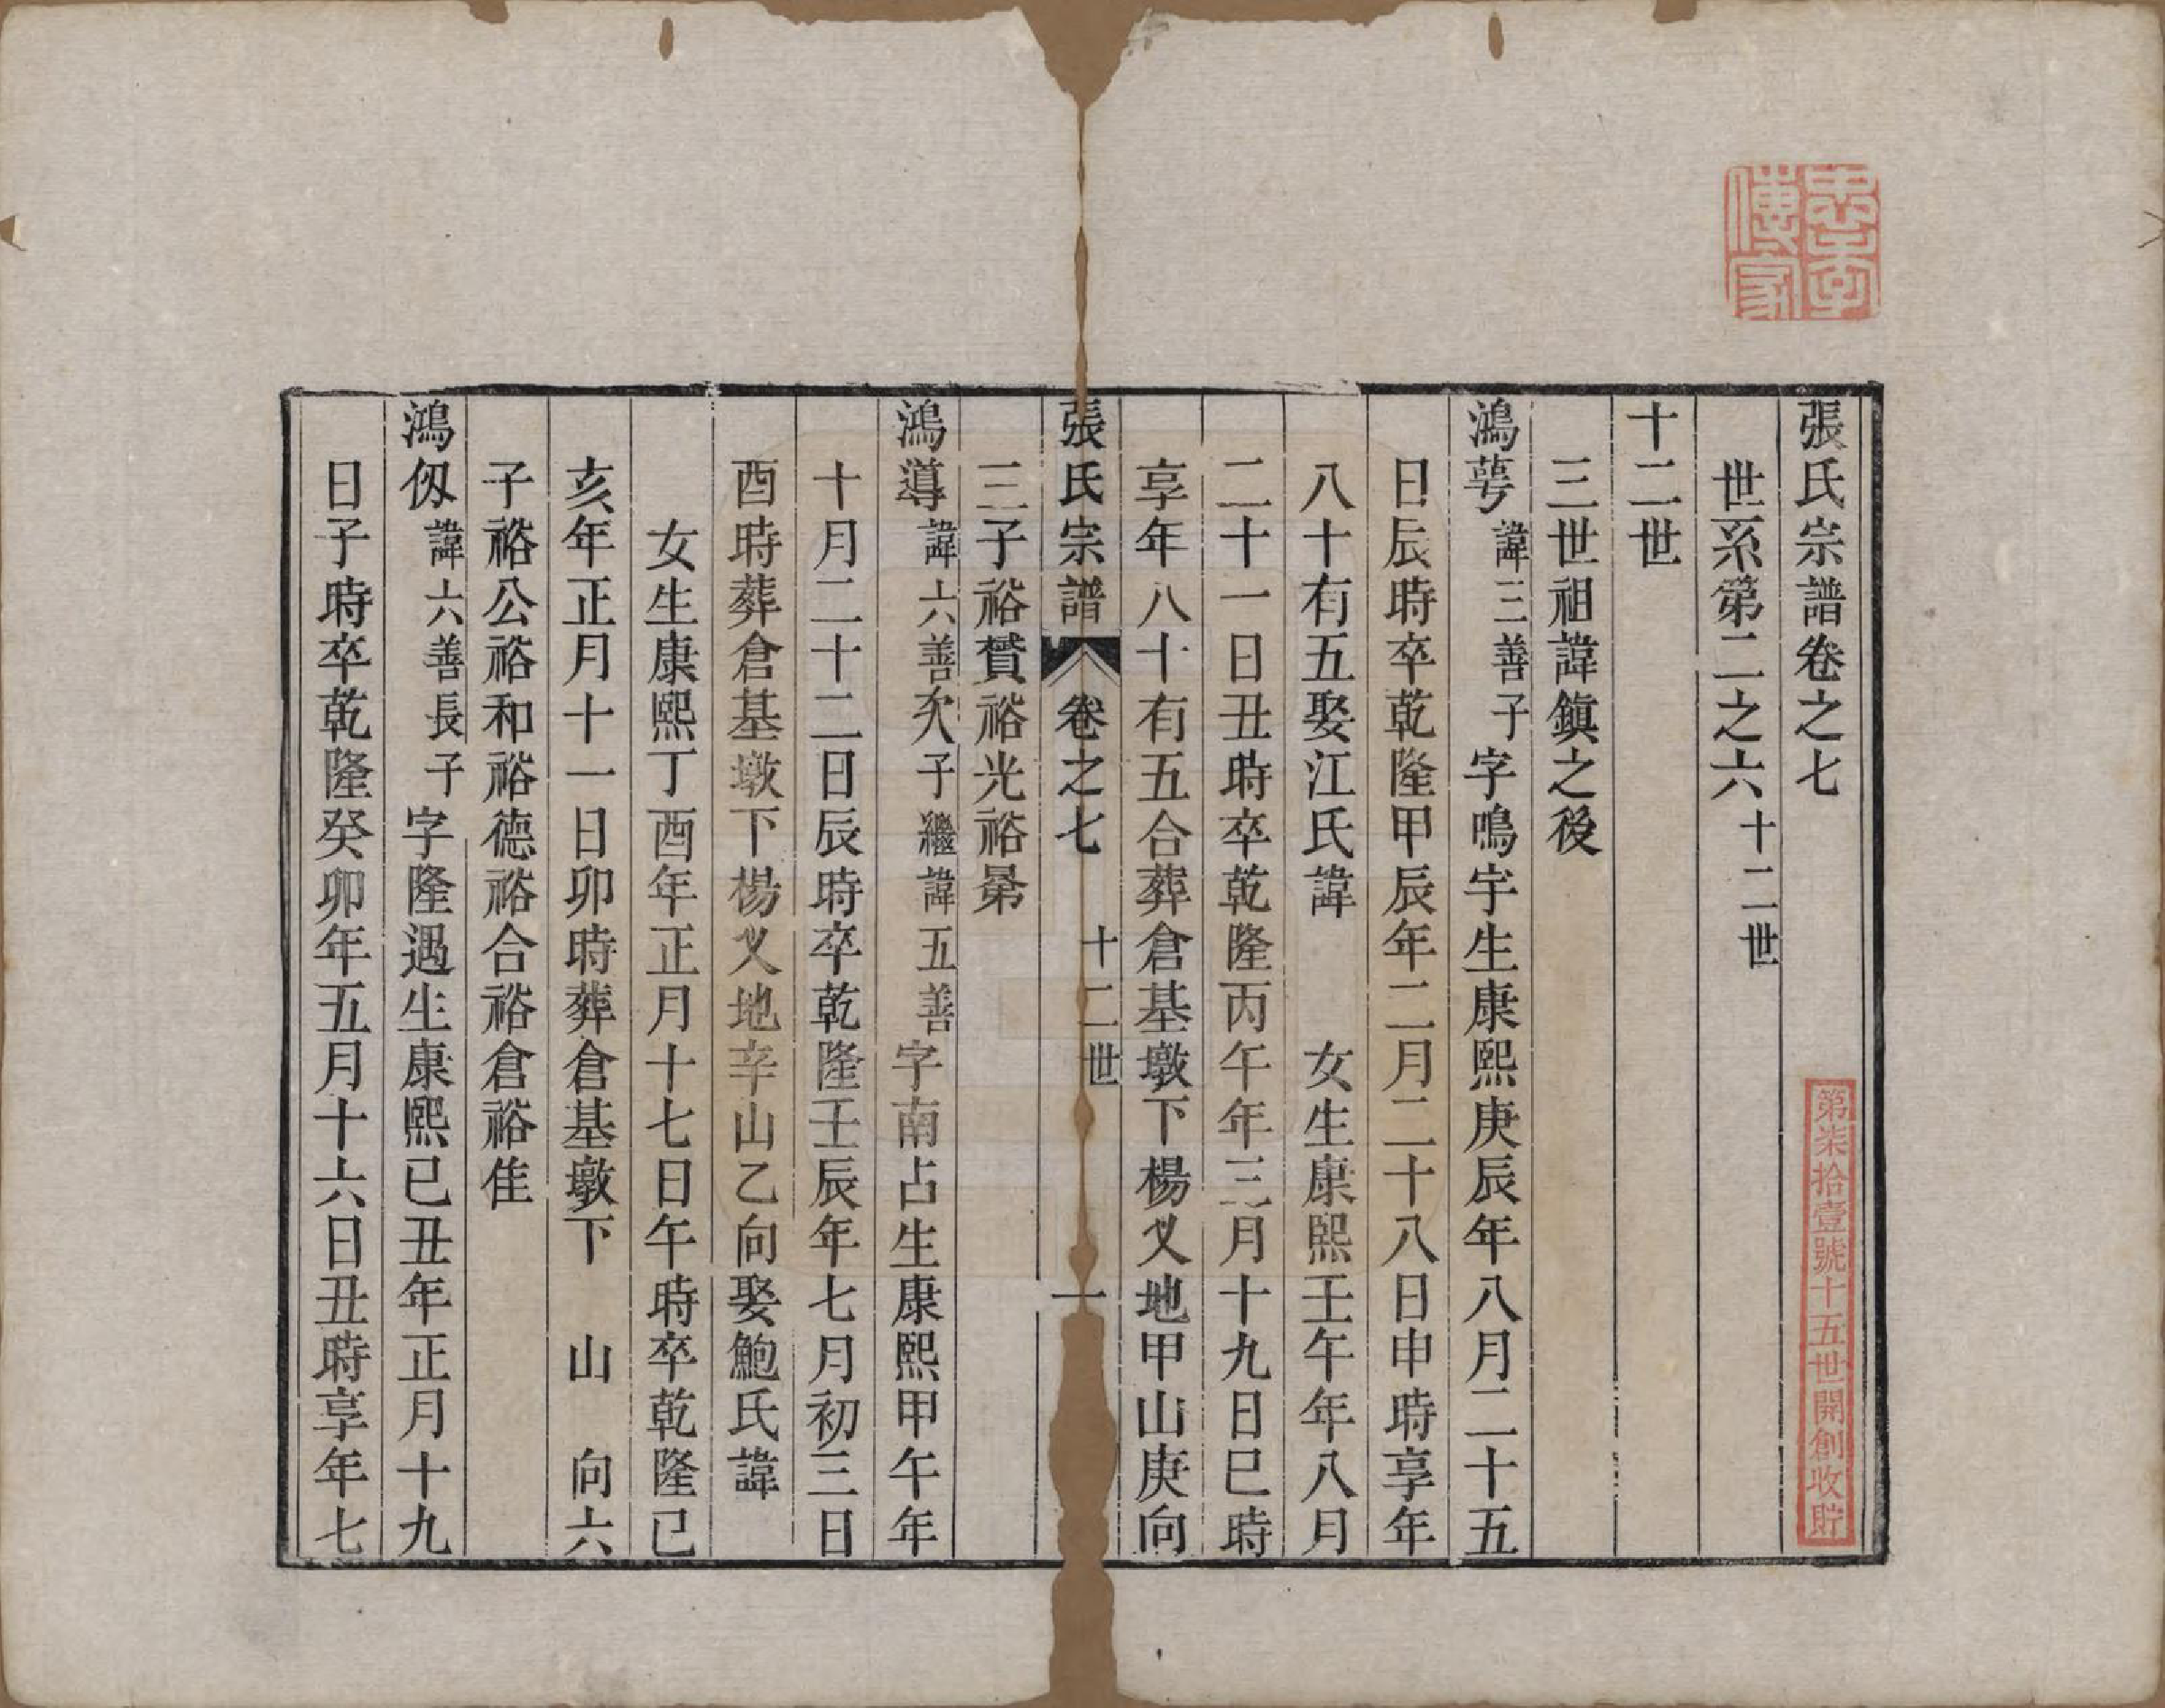 忠孝傳家
張氏宗譜卷之七
第柒拾壹號十五世開創收貯
世系第二之六十二世
十二世
三世祖諱鎮之後
鴻萼諱三善子字鳴宇生康熙庚辰年八月二十五
日辰時卒乾隆甲辰年二月二十八日申時享年
八十有五娶江氏諱 女生康熙壬午年八月
二十一日丑時卒乾隆丙午年三月十九日巳時
享年八十有五合葬倉基墩下楊乂地甲山庚向
張氏宗譜 卷之七 十二世 一
三子裕贊裕光裕㬎
鴻導諱六善次子繼諱五善字南占生康熙甲午年
十月二十二日辰時卒乾隆壬辰年七月初三日
酉時葬倉基墩下楊乂地辛山乙向娶鮑氏諱
女生康熙丁酉年正月十七日午時卒乾隆己
亥年正月十一日卯時葬倉基墩下 山 向六
子裕公裕和裕德裕合裕倉裕隹
鴻㑃諱六善長子字隆遇生康熙己丑年正月十九
日子時卒乾隆癸卯年五月十六日丑時享年七